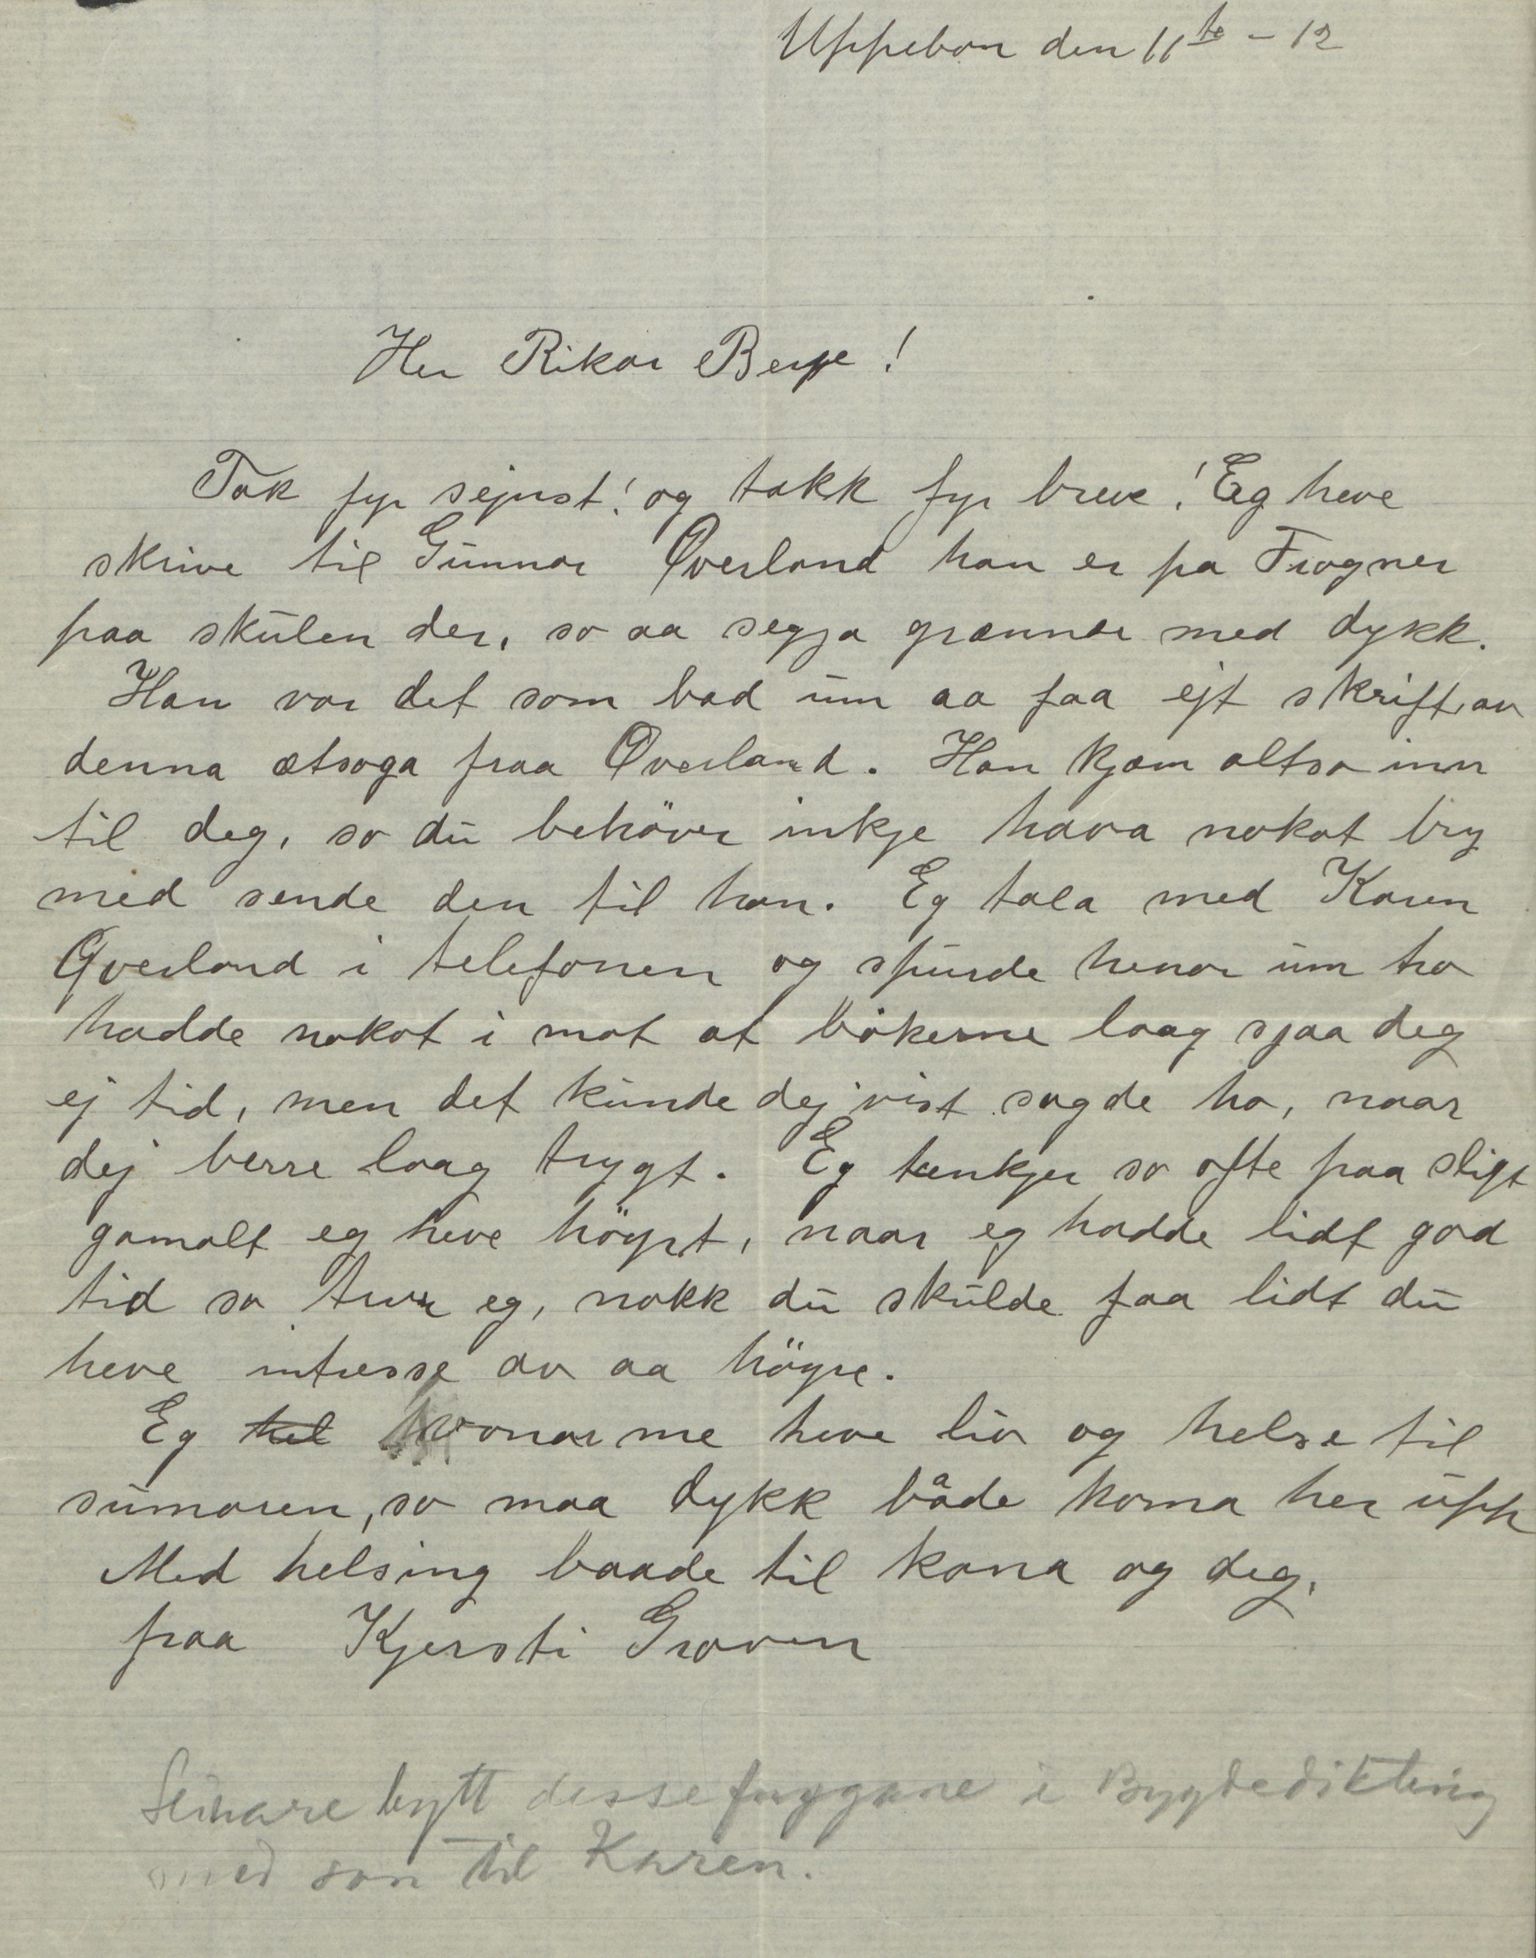 Uppebøn den 11te - 12
Her Rikar Berge!
Tak fyr sejnst! og takk fyr breve! Eg heve
skrive til Gunnar Øverland han er pa Frogner
paa skulen der, so aa segja grænnar med dykk.
Han var det som bad um aa faa ejt skrift av
denna ætsoga fraa Øverland. Han kjæm altso inn
til deg, so du behöver inkje hava nokot bry
med sende den til han. Eg tala med Karen
Øverland i telefonen og spurde henar um ho
hadde nokot i mot at bökerne laag sjaa deg
ej tid, men det kunde dej vist sagde ho, naar
dej berre laag trygt. Eg tænkjer so ofte paa sligt
gamalt eg heve höyrt, naar eg hadde lidt god
tid so trur eg, nokk du skulde faa lidt du
heve intresse av aa höyre.
Eg vonar me heve liv og helse til
sumaren, so maa dykk både koma her upp
Med helsing baade til kona og deg,
fraa Kjersti Groven
Seinare bytt desse i Bygdedikting
med son til Karen.